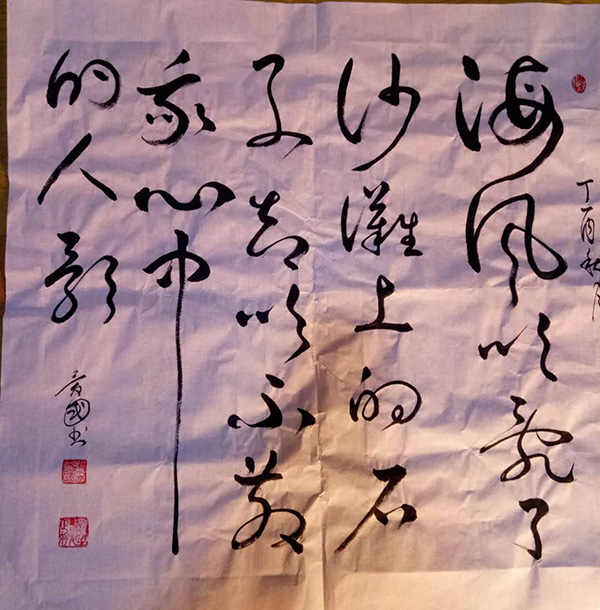 丁酉秋月
海风吹乱了
沙灘上的石
子却吹不散
我心中
的人影
國书